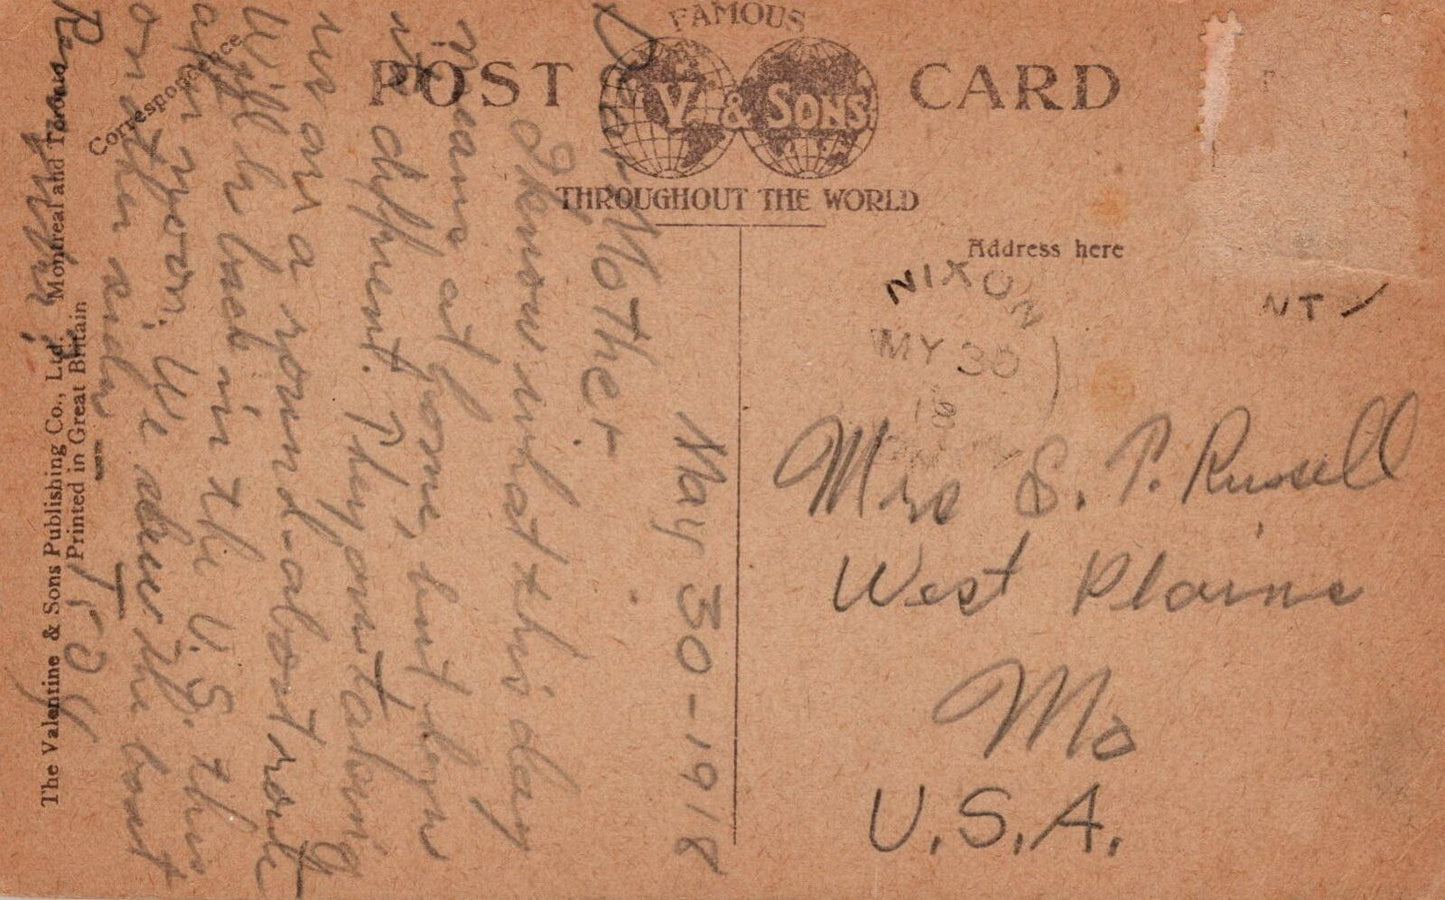 FAMOUS
POST CARD
V. & SONS
THROUGHOUT THE WORLD
Correspondence
Address here
The Valentine & Sons Publishing Co., Ltd. Montreal and Toronto
Printed in Great Britain
NIXON
MY 30
18
ONT
May 30-1918
Dear Mother
I know what this day
means at home, but here
it's different. They are taking
us on a round-about route
Will be back in the U.S. this
afternoon. We saw the boat
on the side
Teddy
Mrs S. P. Russell
West Plains
Mo
U.S.A.